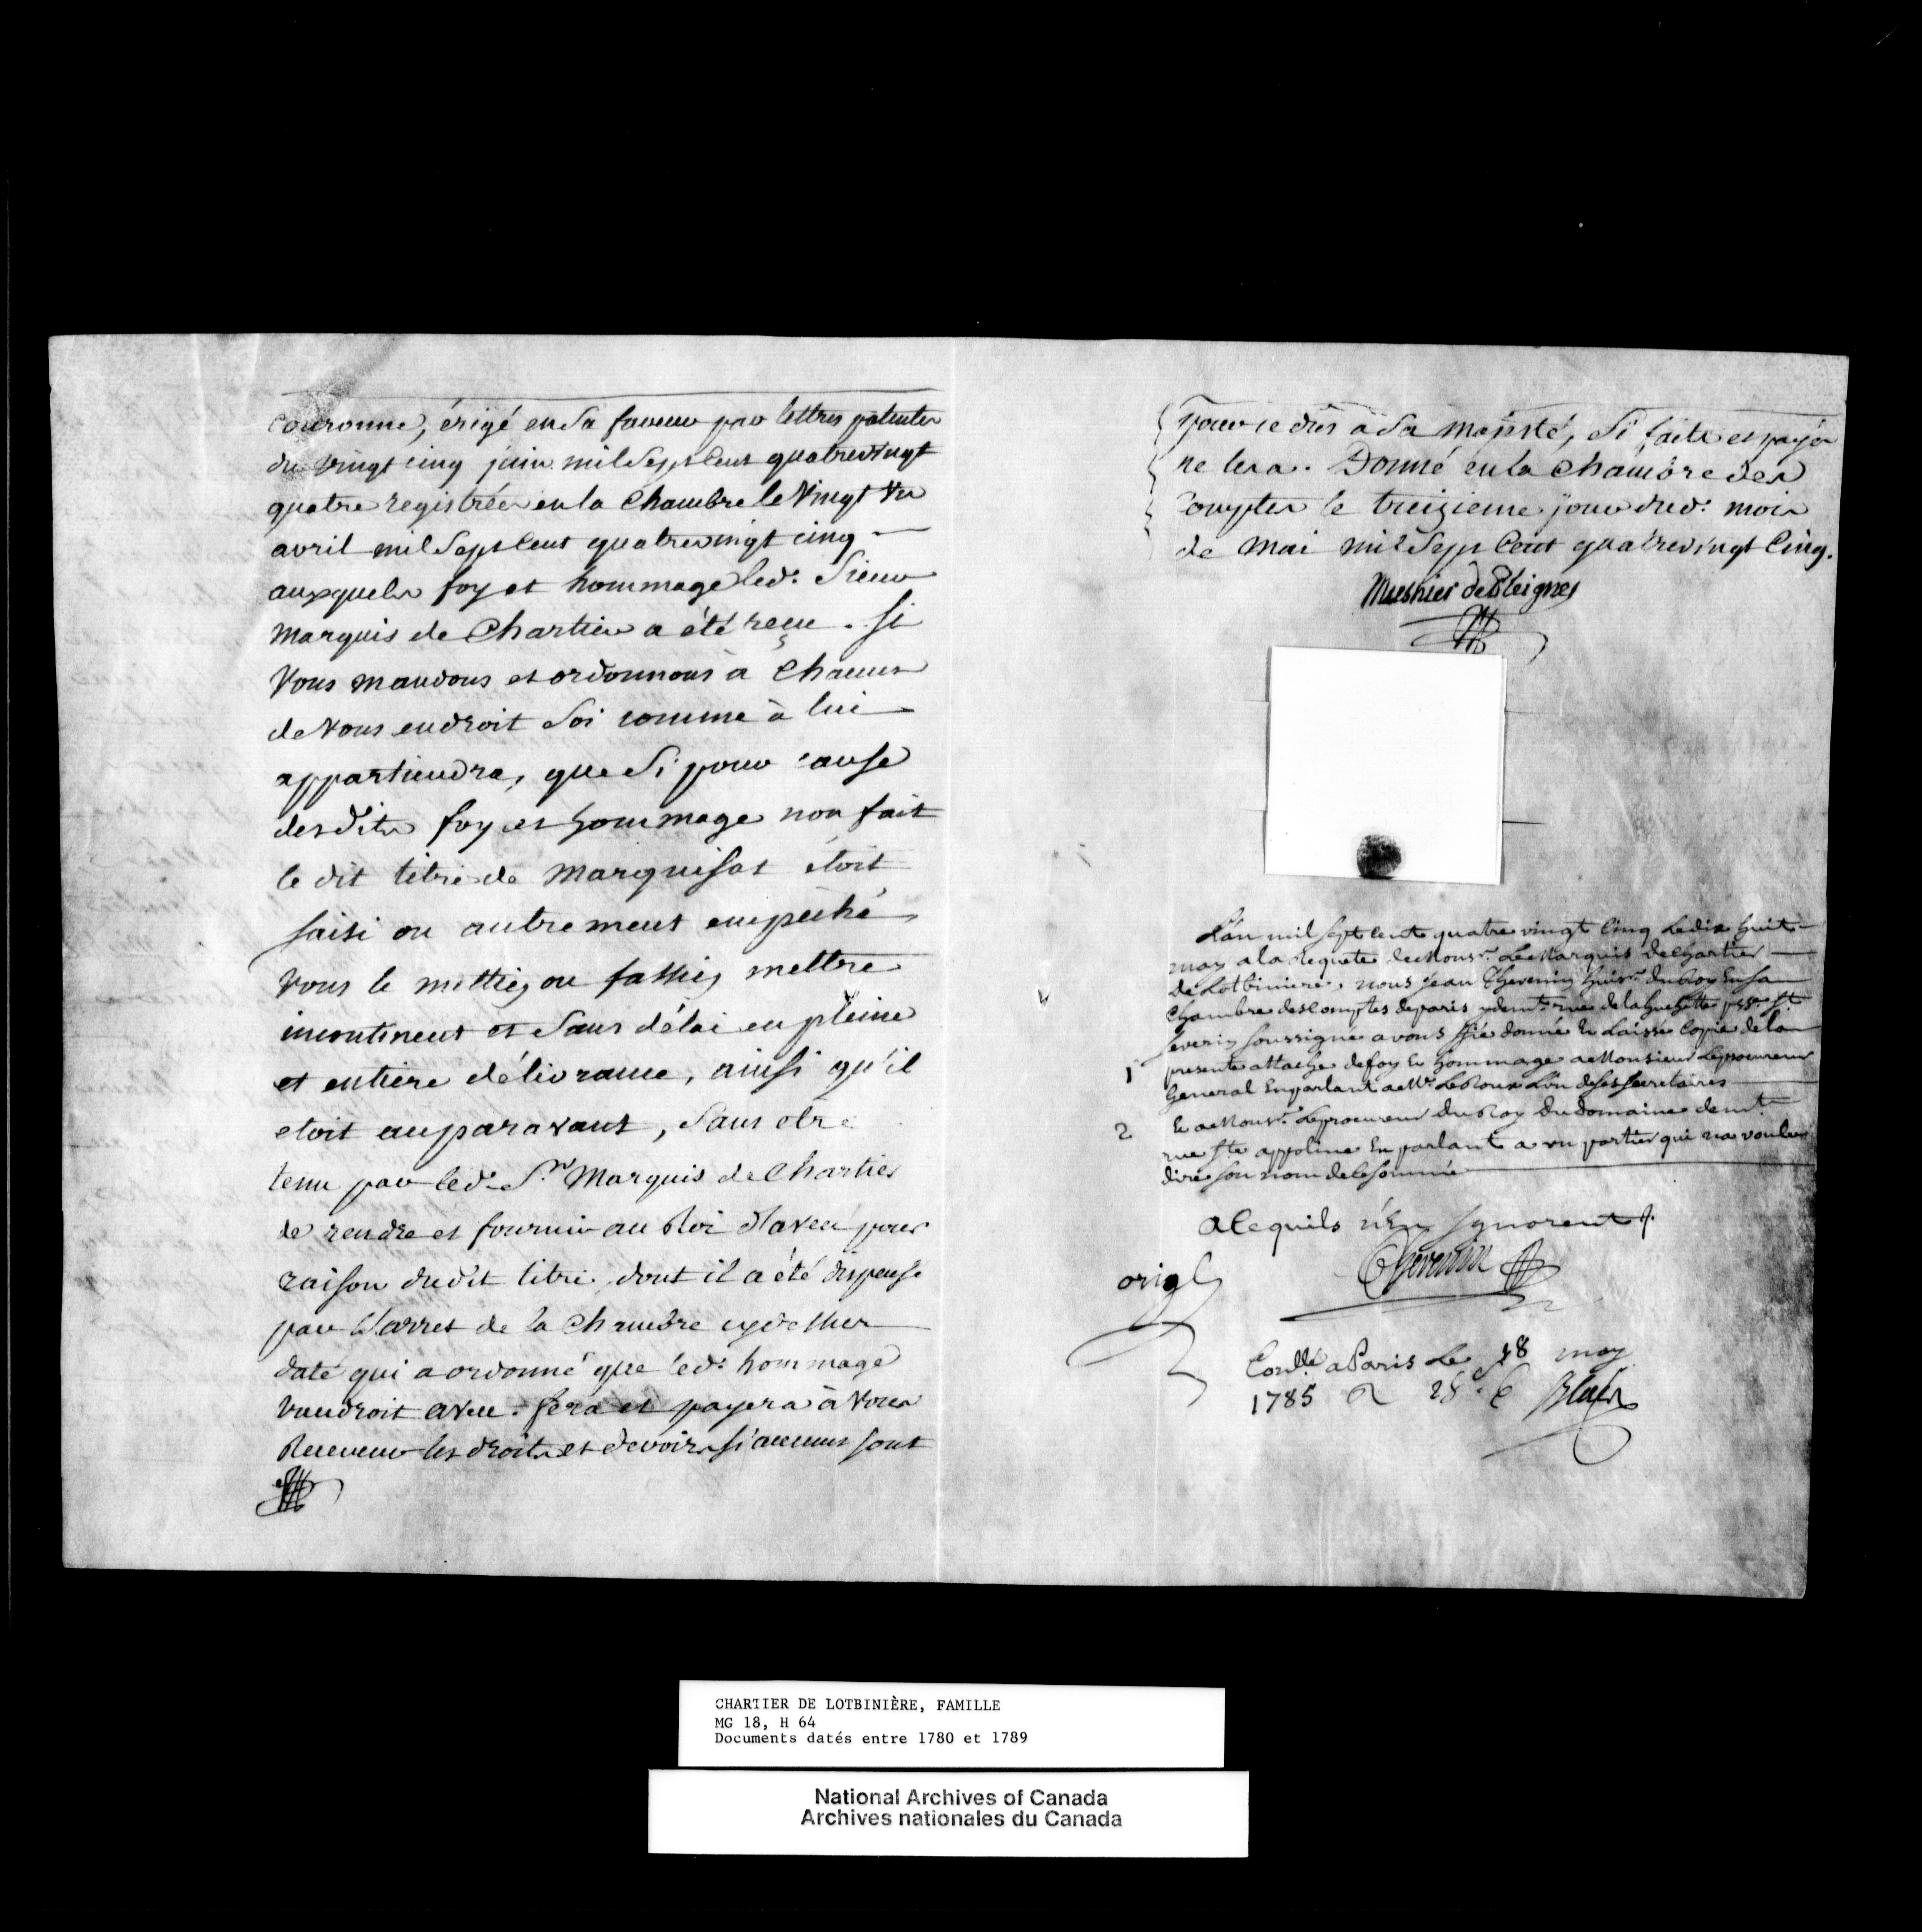 couronne, érigé en sa faveur par lettres patentes
du vingt cinq juin mil sept cent quatrevingt
quatre registrées en la Chambre le vingt un
avril mil sept cent quatrevingt cinq
auxquels foy et hommage led. Sieur
Marquis de Chartier a été reçu. Si
Vous mandons et ordonnons à Chacun
de Vous endroit soi comme à lui
appartiendra, que si pour cause
desdits foy et hommage non fait
le dit titre de Marquisat étoit
saisi ou autrement empêché
Vous le mettiez ou fassiez mettre
incontinent et sans délai en pleine
et entiere délivrance, ainsi qu'il
etoit auparavant, sans etre
tenu par led. Sr. Marquis de Chartier
de rendre et fournir au Roi d'aveu pour
raison dudit titre, dont il a été dispensé
par l'arret de la Chambre cy dessus
daté qui a ordonné que led. hommage
vaudroit aveu. fera et payera à Vous
Receveur les droits et devoirs si aucuns sont
pour ce dus à Sa Majesté, Si faits et payés
ne les a. Donné en la Chambre des
Comptes le treizieme jour dud. mois
de Mai mil sept cent quatrevingt Cinq.
L'an mil sept cent quatre vingt Cinq Le dix huit
may a la Requete de Monsr. Le Marquis De Chartier
De Lotbiniere, nous Jean Thevenin huisr. du Roy En sa
Chambre des Comptes de paris y demt. rue de la huchette psse. St.
severin soussigné avons sfié donné Et Laissé Copie de la
1 presente attache de foy Et hommage a Monsieur Le procureur
General En parlant a Mr. Le Roux L'un de ses secretaires
2 Et a Monsr. Le procureur Du Roy Du Domaine demt.
rue Ste appoline En parlant a un portier qui n'a voulu
dire son nom de ce sommé
a ce quils n'en Ignorent
Thevenin
orig
Conllé a Paris Le 18 may
1785
CHARTIER DE LOTBINIÈRE, FAMILLE
MG 18, H 64
Documents datés entre 1780 et 1789
National Archives of Canada
Archives nationales du Canada